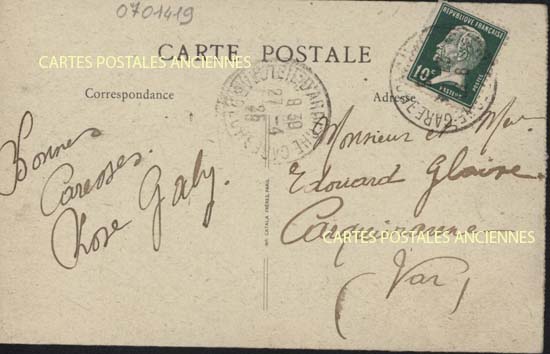 0701419
CARTE POSTALE
CARTES POSTALES ANCIENNES
Correspondance
Adresse
RÉPUBLIQUE FRANÇAISE
10c
POSTES
PASTEUR
9 30
27-4
26
Bonnes
Caresses.
Rose Gaby.
Monsieur et Mme
Edouard Gloire
Carqueiranne
CARTES POSTALES ANCIENNES
(Var)
IMP. CATALA FRÈRES, PARIS